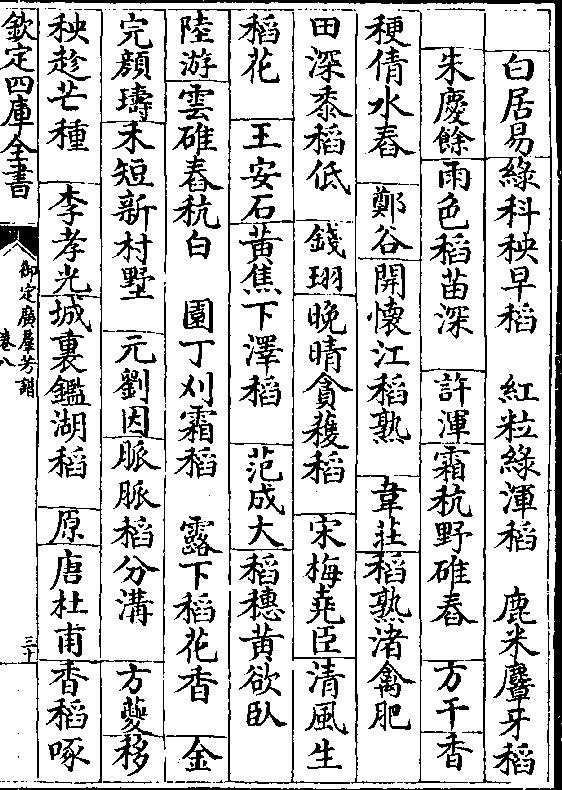 白居易綠科秧早稻　紅粒綠渾稻　鹿米麞牙稻
朱慶餘雨色稻苗深　許渾霜秔野碓舂　方干香
稉倩水舂　鄭谷開懷江稻熟　韋莊稻熟渚禽肥
田深黍稻低　錢珝晚晴貪穫稻　宋梅堯臣清風生
稻花　王安石黄焦下澤稻　范成大稻穗黄欲臥
陸游雲碓舂秔白　園丁刈霜稻　露下稻花香　金
完顔璹禾短新村墅　元劉因脈脈稻分溝　方夔移
秧趁芒種　李孝光城裏鑑湖稻　原唐杜甫香稻啄
欽定四庫全書
御定廣羣芳譜
卷八
三十